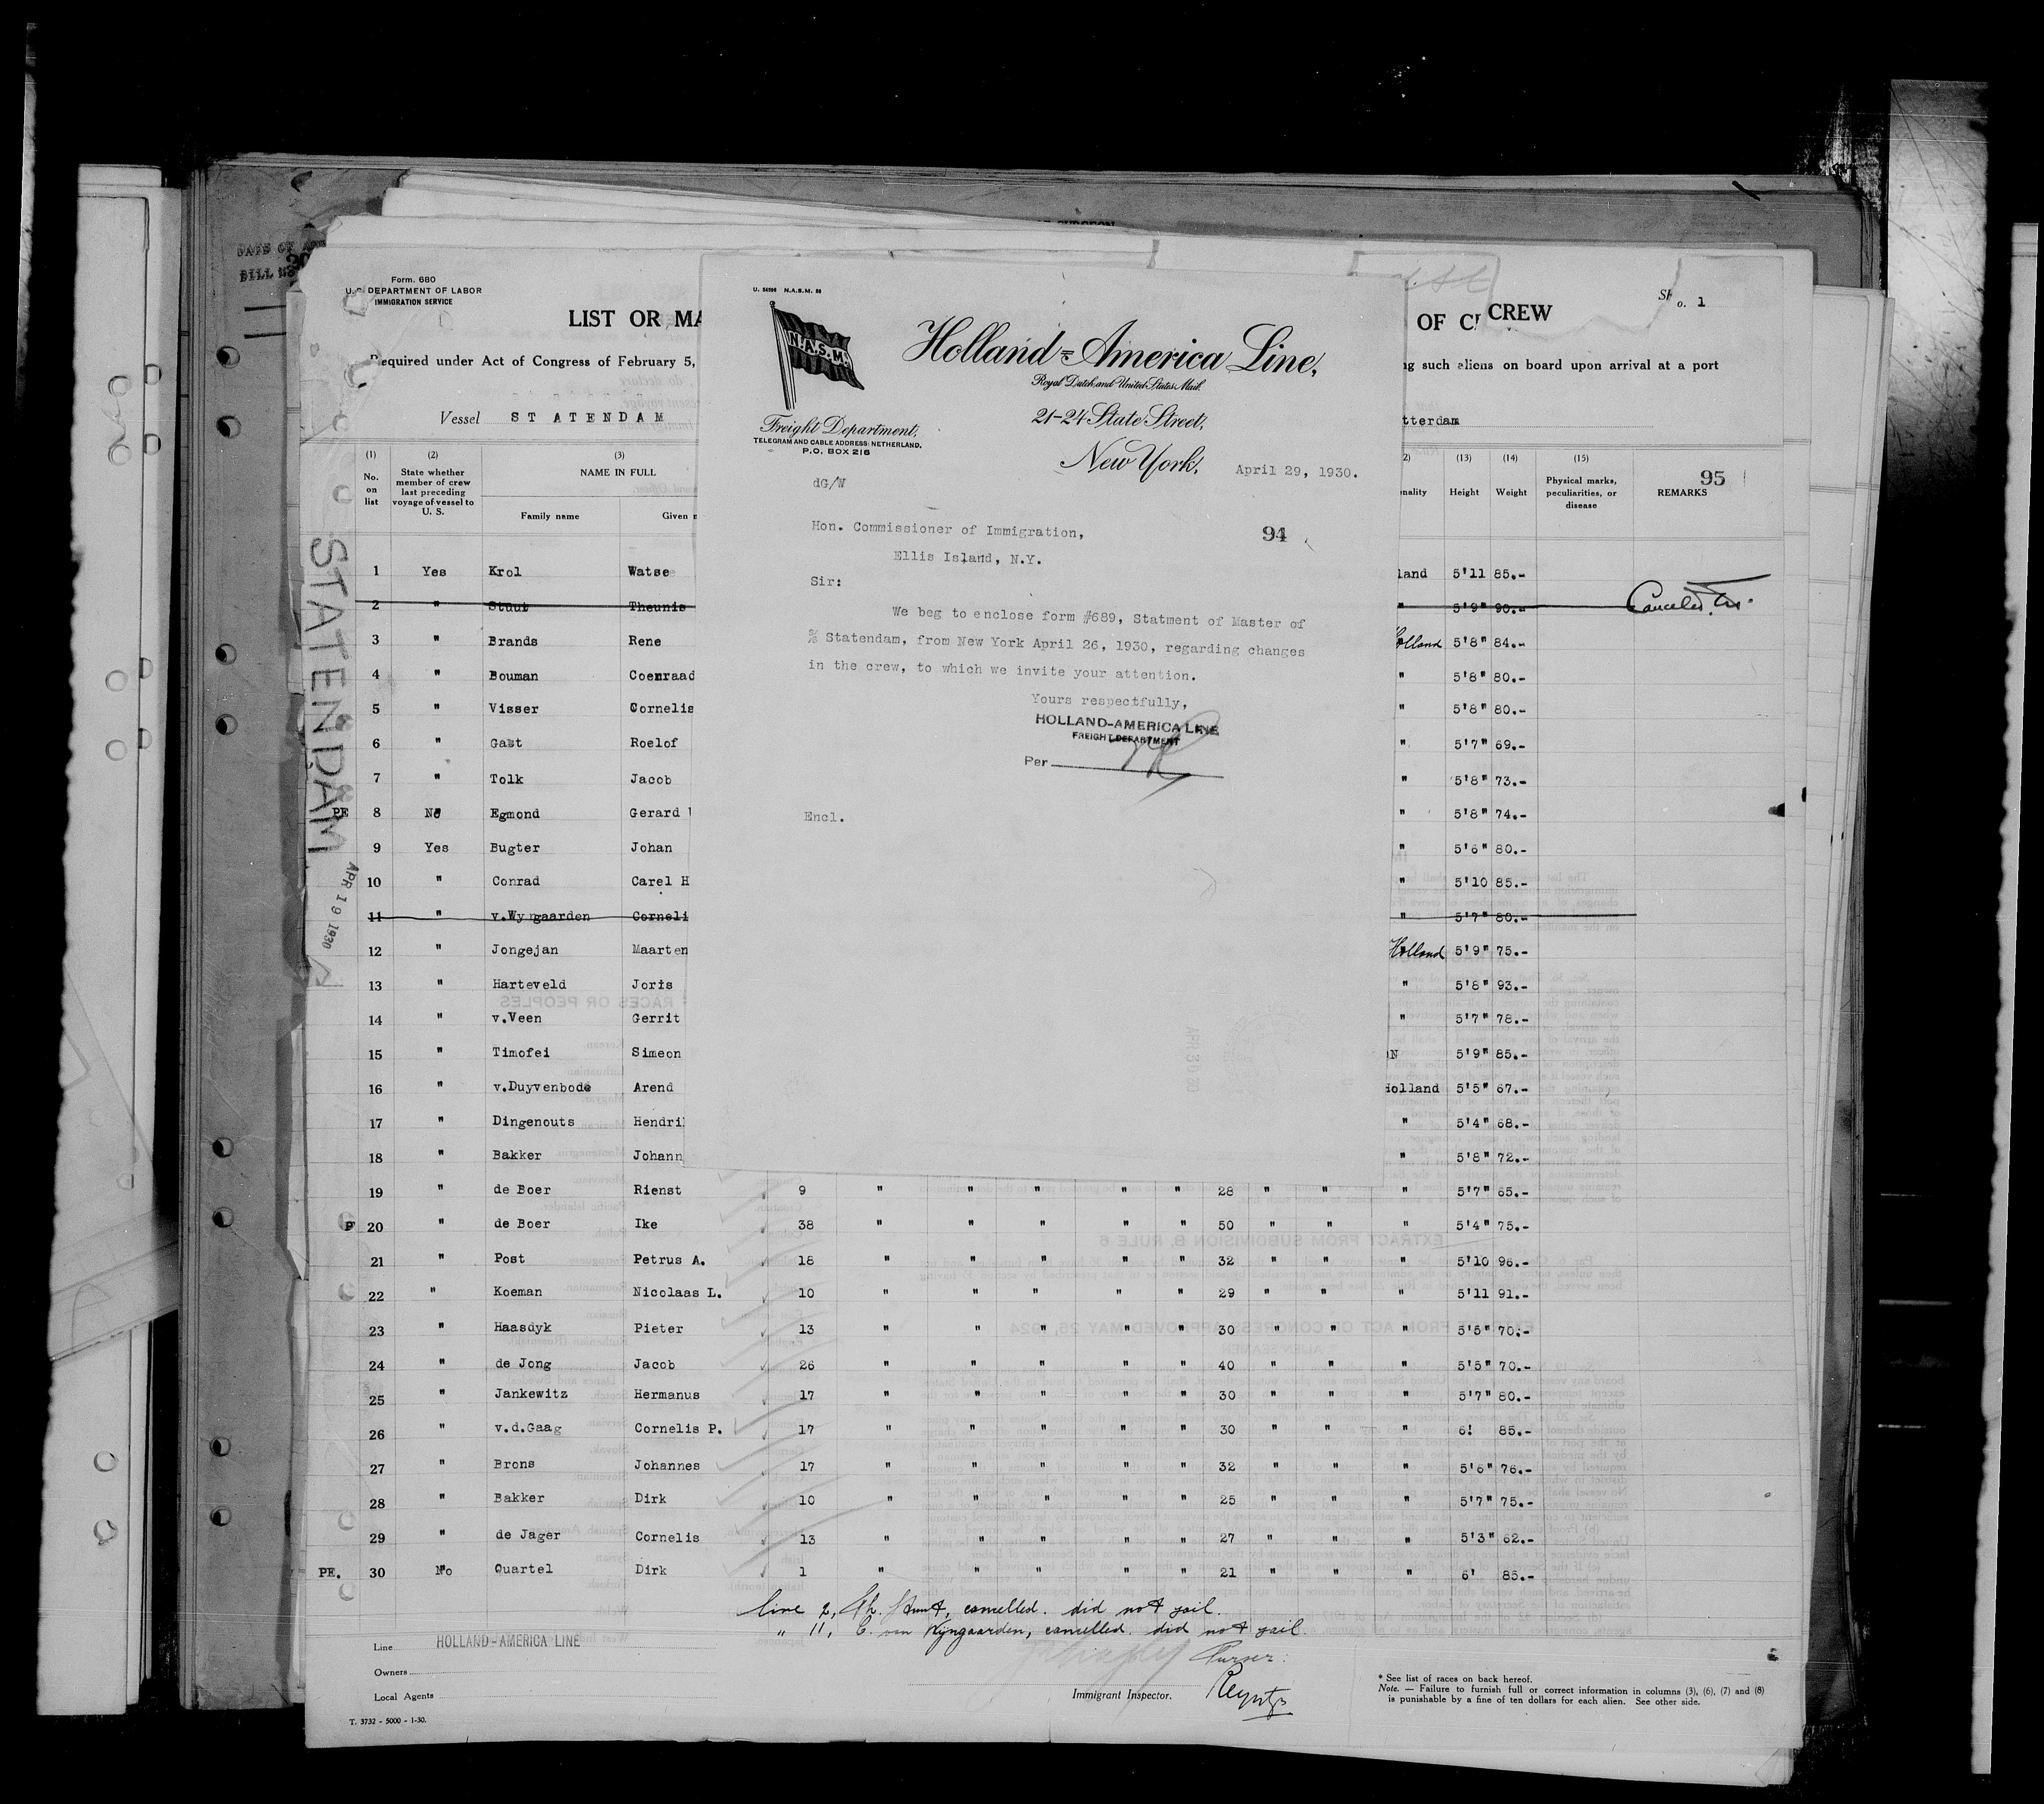 Form. 680
U. S. DEPARTMENT OF LABOR
IMMIGRATION SERVICE
LIST OR MA
OF CREW
1
Required under Act of Congress of February 5,
such aliens on board upon arrival at a port
Vessel STATENDAM
tterdam
(1) (2) (3) (13) (14) (15)
No. on list
State whether member of crew last preceding voyage of vessel to U. S.
NAME IN FULL
Family name
Given
Height Weight
Physical marks, peculiarities, or disease
REMARKS
95
U. 54596 N.A.S.M. 86
N.A.S.M.
Holland-America Line,
Royal Dutch and United States Mail.
21-24 State Street,
Freight Department,
TELEGRAM AND CABLE ADDRESS: NETHERLAND.
P.O. BOX 216
New York, April 29, 1930.
dG/W
Hon. Commissioner of Immigration,
94
Ellis Island, N.Y.
Sir:
We beg to enclose form #689, Statment of Master of
S/S Statendam, from New York April 26, 1930, regarding changes
in the crew, to which we invite your attention.
Yours respectfully,
HOLLAND-AMERICA LINE
FREIGHT DEPARTMENT
Per
Encl.
APR 30 1930
STATENDAM
APR 19 1930
1 Yes Krol Watse land 5'11 85.-
2 " Stuut Theunis " 5'9" 90.- Canceled
3 " Brands Rene Holland 5'8" 84.-
4 " Bouman Coenraad " 5'8" 80.-
5 " Visser Cornelis " 5'8" 80.-
6 " Gast Roelof " 5'7" 69.-
7 " Tolk Jacob " 5'8" 73.-
PE 8 No Egmond Gerard " 5'8" 74.-
9 Yes Bugter Johan " 5'6" 80.-
10 " Conrad Carel H " 5'10 85.-
11 " v.Wyngaarden Corneli " 5'7" 80.-
12 " Jongejan Maarten Holland 5'9" 75.-
13 " Harteveld Joris " 5'8" 93.-
14 " v.Veen Gerrit " 5'7" 78.-
15 " Timofei Simeon N 5'9" 85.-
16 " v.Duyvenbode Arend Holland 5'5" 67.-
17 " Dingenouts Hendri " 5'4" 68.-
18 " Bakker Johann " 5'8" 72.-
19 " de Boer Rienst 9 " " " " " 28 " " " 5'7" 65.-
P 20 " de Boer Ike 38 " " " " " 50 " " " 5'4" 75.-
21 " Post Petrus A. 18 " " " " " 32 " " " 5'10 96.-
22 " Koeman Nicolaas L. 10 " " " " " 29 " " " 5'11 91.-
23 " Haasdyk Pieter 13 " " " " " 30 " " " 5'5" 70.-
24 " de Jong Jacob 26 " " " " " 40 " " " 5'5" 70.-
25 " Jankewitz Hermanus 17 " " " " " 30 " " " 5'7" 80.-
26 " v.d.Gaag Cornelis P. 17 " " " " " 30 " " " 6' 85.-
27 " Brons Johannes 17 " " " " " 32 " " " 5'6" 76.-
28 " Bakker Dirk 10 " " " " " 25 " " " 5'7" 75.-
29 " de Jager Cornelis 13 " " " " " 27 " " " 5'3" 62.-
PE. 30 No Quartel Dirk 1 " " " " " 21 " " " 6' 85.-
line 2, Th. Stuut, cancelled. did not sail.
" 11, C. van Wijngaarden, cancelled. did not sail.
Purser.
Line HOLLAND-AMERICA LINE
Owners
Local Agents
Immigrant Inspector.
* See list of races on back hereof.
Note. — Failure to furnish full or correct information in columns (3), (6), (7) and (8)
is punishable by a fine of ten dollars for each alien. See other side.
T. 3732 - 5000 - 1-30.